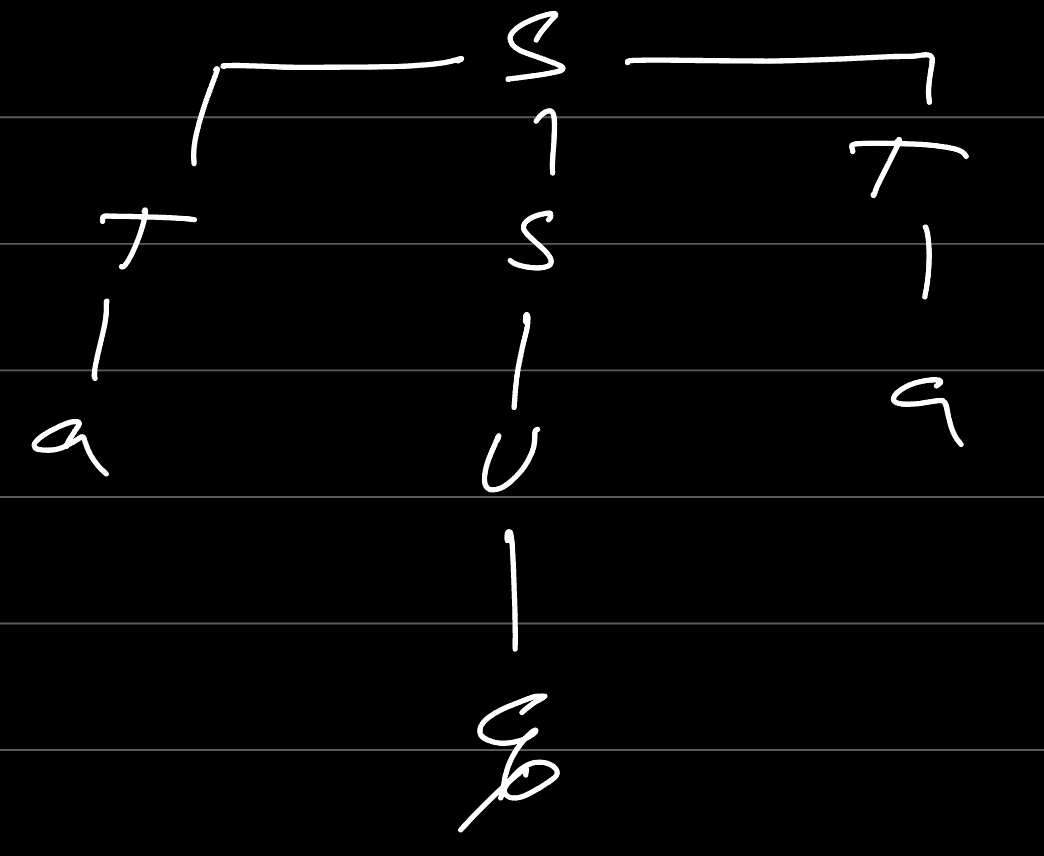 S
T S T
a U a